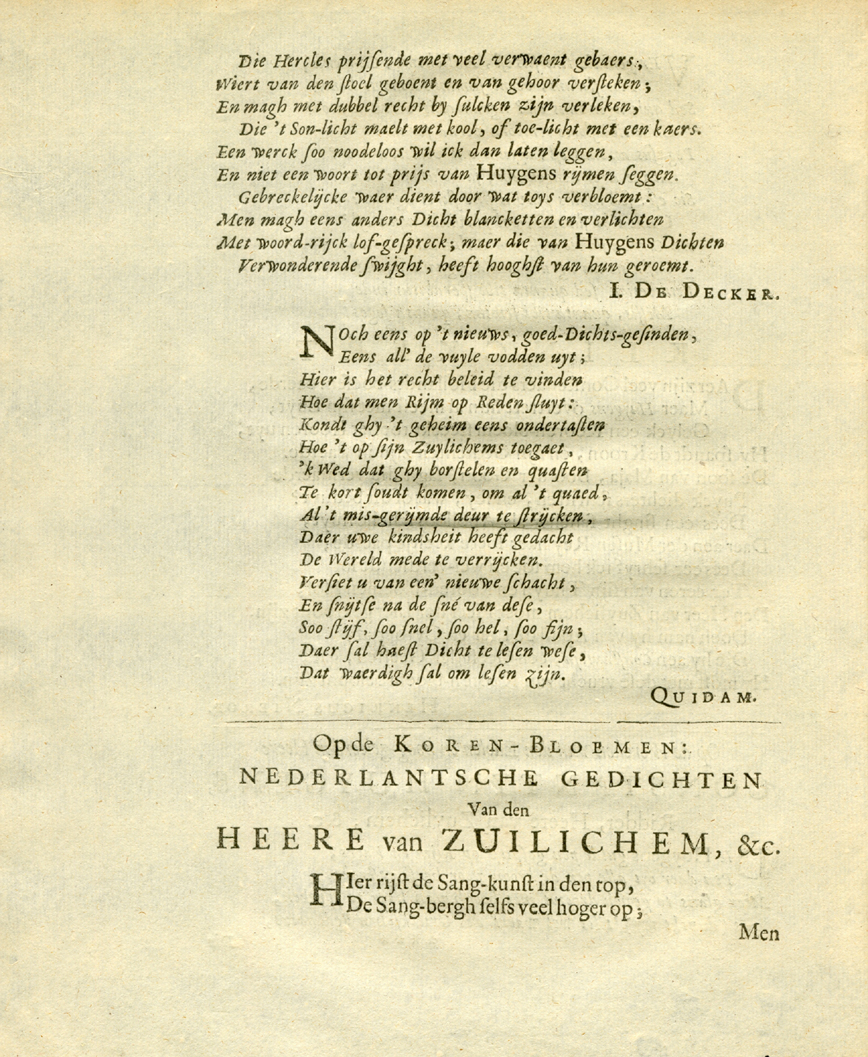 Die Hercles prijſende met veel verwaent gebaers,
Wiert van den ſtoel geboent en van gehoor verſteken;
En magh met dubbel recht by ſulcken zijn verleken,
Die 't Son-licht maelt met kool, of toe-licht met een kaers.
Een werck ſoo noodeloos wil ick dan laten leggen,
En niet een woort tot prijs van Huygens rijmen ſeggen.
Gebreckelijcke waer dient door wat toys verbloemt:
Men magh eens anders Dicht blancketten en verlichten
Met woord-rijck lof-geſpreck; maer die van Huygens Dichten
Verwonderende ſwijght, heeft hooghſt van hun geroemt.
I. DE DECKER.
NOch eens op 't nieuws, goed-Dichts-geſinden,
Eens all' de vuyle vodden uyt;
Hier is het recht beleid te vinden
Hoe dat men Rijm op Reden ſluyt:
Kondt ghy 't geheim eens ondertaſten
Hoe 't op ſijn Zuylichems toegaet,
'k Wed dat ghy borſtelen en quaſten
Te kort ſoudt komen, om al 't quaed,
Al 't mis-gerijmde deur te ſtrijcken,
Daer uwe kindsheit heeft gedacht
De Wereld mede te verrijcken.
Verſiet u van een' nieuwe ſchacht,
En ſnijtſe na de ſné van deſe,
Soo ſtijf, ſoo ſnel, ſoo hel, ſoo fijn;
Daer ſal haeſt Dicht te leſen weſe,
Dat waerdigh ſal om leſen zijn.
QUIDAM.
Op de KOREN-BLOEMEN:
NEDERLANTSCHE GEDICHTEN
Van den
HEERE van ZUILICHEM, &c.
HIer rijſt de Sang-kunſt in den top,
De Sang-bergh ſelfs veel hoger op;
Men